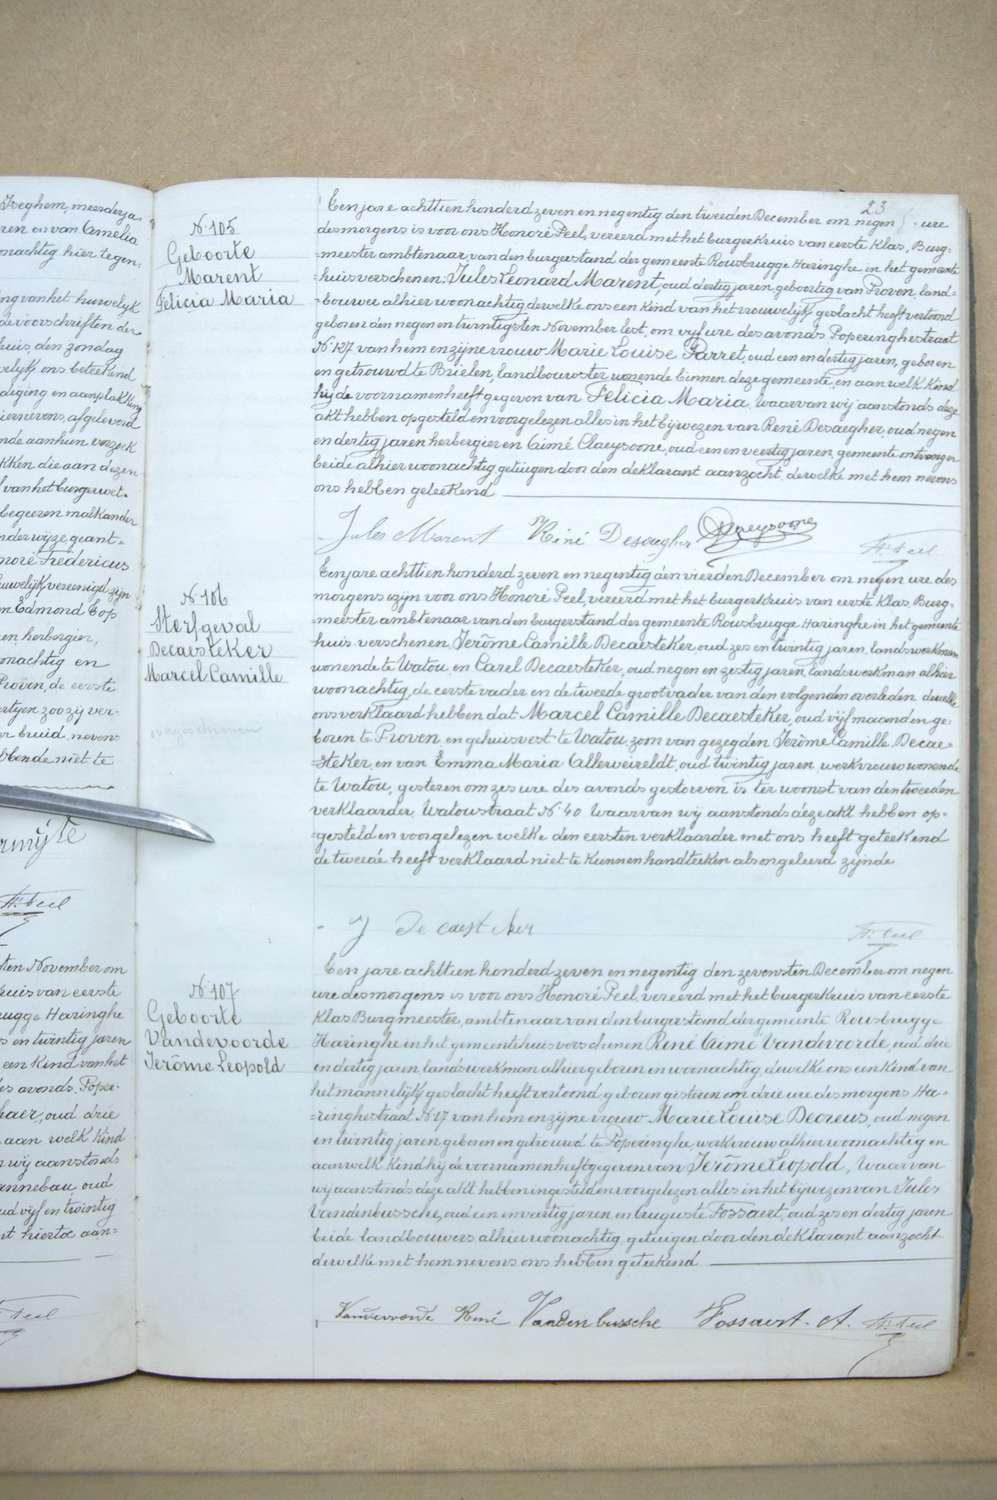 Iseghem, meerderja
ren en van Amelia
onachtig hier tegen
ng van het huwelijk
de voorschriften der
huis den zondag
ons beteekend
diging en aanplakking
hiernevens, afgelevord
nde aan hun verzoek
kken die aan dezen
van het burger wet-
begeeren malkander
nder wijze geant=
noré Fredericus
huwelijk vereenigd zijn
en Edmond Cop
en herbergier,
onachtig en
Proven, de eerste
ertijen zoo zij ver-
er bruid, nevens
bbende niet te
H. Peel
sten November om
kruis van eerste
rugge Haringhe
s en twintig jaren
een kind van het
des avonds, Poper-
haer, oud drie
aan welk kind
n wij aanstonds
annebau oud
ud vijf en twintig
nt hiertoe aan=
H. Peel
23
N. 105
Geboorte
Marent
Felicia Maria
Een jare achttien honderd zeven en negentig den tweeden December om negen ure
des morgens is voor ons Honoré Peel, vereerd met het burgerkruis van eerste klas, Burg-
=meester ambtenaar van den burgerstand der gemeente Rousbrugge Haringhe in het gemeente
=huis verschenen: Jules Leonard Marent, oud dertig jaren, geboortig van Proven, land=
=bouwer alhier woonachtig dewelke ons een kind van het vrouwelijk geslacht heeft vertoond
geboren den negen en twintigsten November lest, om vijf ure des avonds Poperinghestraat
N. 127 van hem en zijne vrouw Marie Louise Parret, oud een en dertig jaren, geboren
en getrouwd te Brielen, landbouwster wonende binnen deze gemeente, en aan welk kind
hij de voornamen heeft gegeven van Felicia Maria, waarvan wij aanstonds deze
akt hebben opgesteld en voorgelezen alles in het bijwezen van René Desaegher, oud negen
en dertig jaren herbergier en Aimé Claeysoone, oud een en veertig jaren, gemeente ontvanger
beide alhier woonachtig getuigen door den deklarant aanzocht dewelke met hem nevens
ons hebben geteekend
Jules Marent René Desaegher Claeysoone H. Peel
N. 106
Sterfgeval
Decaesteker
Marcel Camille
Een jare achttien honderd zeven en negentig den vierden December om negen ure des
morgens zijn voor ons Honoré Peel, vereerd met het burgerkruis van eerste klas, Burg-
meester ambtenaar van den burgerstand der gemeente Rousbrugge Haringhe in het gemeente
huis verschenen Jerôme Camille Decaesteker, oud zes en twintig jaren, landswerkman
wonende te Watou en Carel Decaesteker, oud negen en zestig jaren, landswerkman alhier
woonachtig, de eerste vader en de tweede grootvader van den volgenden overleden dewelke
ons verklaard hebben dat Marcel Camille Decaesteker, oud vijf maanden ge-
boren te Proven en gehuisvest te Watou, zoon van gezegden Jerôme Camille Decae=
=steker, en van Emma Maria Allerweireldt, oud twintig jaren werkvrouw wonende
te Watou, gisteren om zes ure des avonds gestorven is ter woonst van den tweeden
verklaarder, Watoustraat N. 40 Waarvan wij aanstonds deze akt hebben op-
=gesteld en voorgelezen welke den eersten verklaarder met ons heeft geteekend
de tweede heeft verklaard niet te kunnen handteeken als ongeleerd zijnde
J Decaesteker H. Peel
N. 107
Geboorte
Vandevoorde
Jerôme Leopold
Een jare achttien honderd zeven en negentig den zevensten December om negen
ure des morgens is voor ons Honoré Peel, vereerd met het burgerkruis van eerste
klas Burgmeester, ambtenaar van den burgerstand der gemeente Rousbrugge
Haringhe in het gemeentehuis verschenen René Aimé Vandevoorde, oud drie
en dertig jaren, landswerkman alhier geboren en woonachtig, dewelke ons een kind van
het mannelijk geslacht heeft vertoond geboren gisteren om drie ure des morgens Ha=
=ringhestraat N. 17 van hem en zijne vrouw Marie Louise Decreus, oud negen
en twintig jaren geboren en getrouwd te Poperinghe werkvrouw alhier woonachtig en
aan welk kind hij de voornamen heeft gegeven van Jerôme Leopold, Waarvan
wij aanstonds deze akt hebben ingesteld en voorgelezen alles in het bijwezen van Jules
Vandenbussche, oud een en veertig jaren en Auguste Fossaert, oud zes en dertig jaren
beide landbouwers alhier woonachtig getuigen door den deklarant aanzocht
dewelke met hem nevens ons hebben geteekend
Vandevoorde René Vandenbussche Fossaert. A. H. Peel